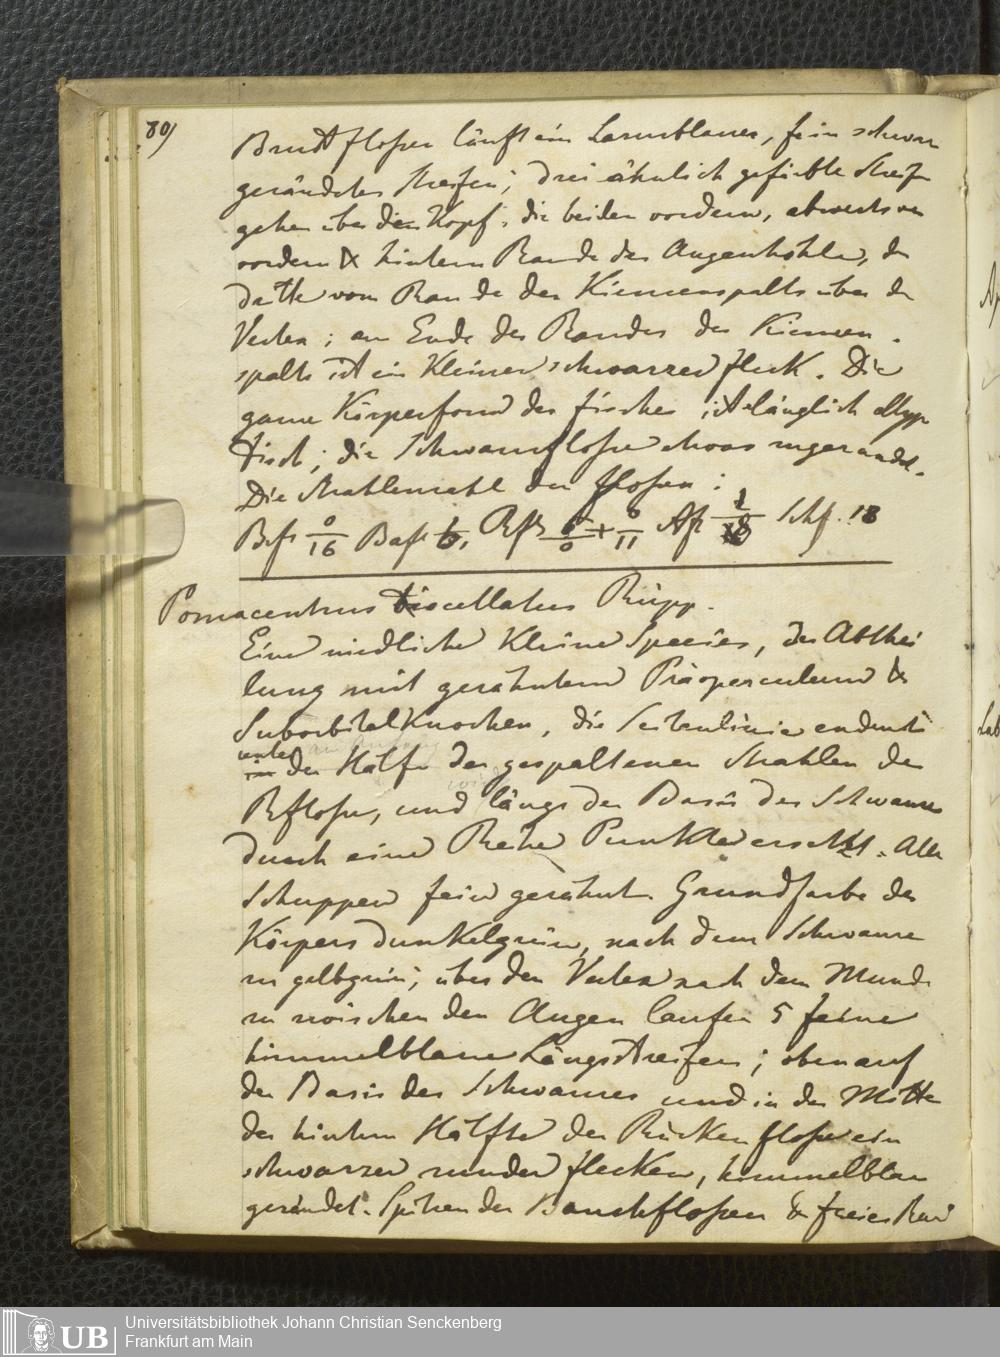 80)
Brustflossen läuft ein Lasurblauer, fein schwarz
gerändeter Streifen; drei ähnlich gefärbte Streifen
gehen über den Kopf, die beiden vordern, abwerts vom
vordern & hintern Rande der Augenhöhle, der
dritte vom Rande der Kiemenspalte über den
Vertex; am Ende des Randes der Kiemen-
spalte ist ein Kleiner schwarzer fleck. Die
ganze Körperform des fisches ist länglich ellyp
tisch; die Schwanzflosse etwas zugerundet.
Die Strahlenzahl der flossen:
Brfl 0/16 Schfl. 18
Pomacentrus biocellatus Rüpp.
Eine niedliche Kleine Species, der Abthei
lung mit gezähntem Präoperculum &
Suborbitalknochen, die Seitenlinie endend
unter der Hälfte der gespaltenen Strahlen der
Rflosse, und längs der Basis des Schwanzes
durch eine Reihe Punkte ersetzt. Alle
Schuppen fein gezähnt. Grundfarbe des
Körpers dunkelgrün, nach dem Schwanze
zu gelbgrün; über den Vertex nach dem Munde
zu zwischen den Augen laufen 5 feine
himmelblaue Längsstreifen; oben auf
der Basis des Schwanzes und in der Mitte
der hintern Hälfte der Rückenflosse ein
schwarzer runder flecken, himmelblau
gerändet. Spitzen der Bauchflossen & freier Rand
UB
Universitätsbibliothek Johann Christian Senckenberg
Frankfurt am Main